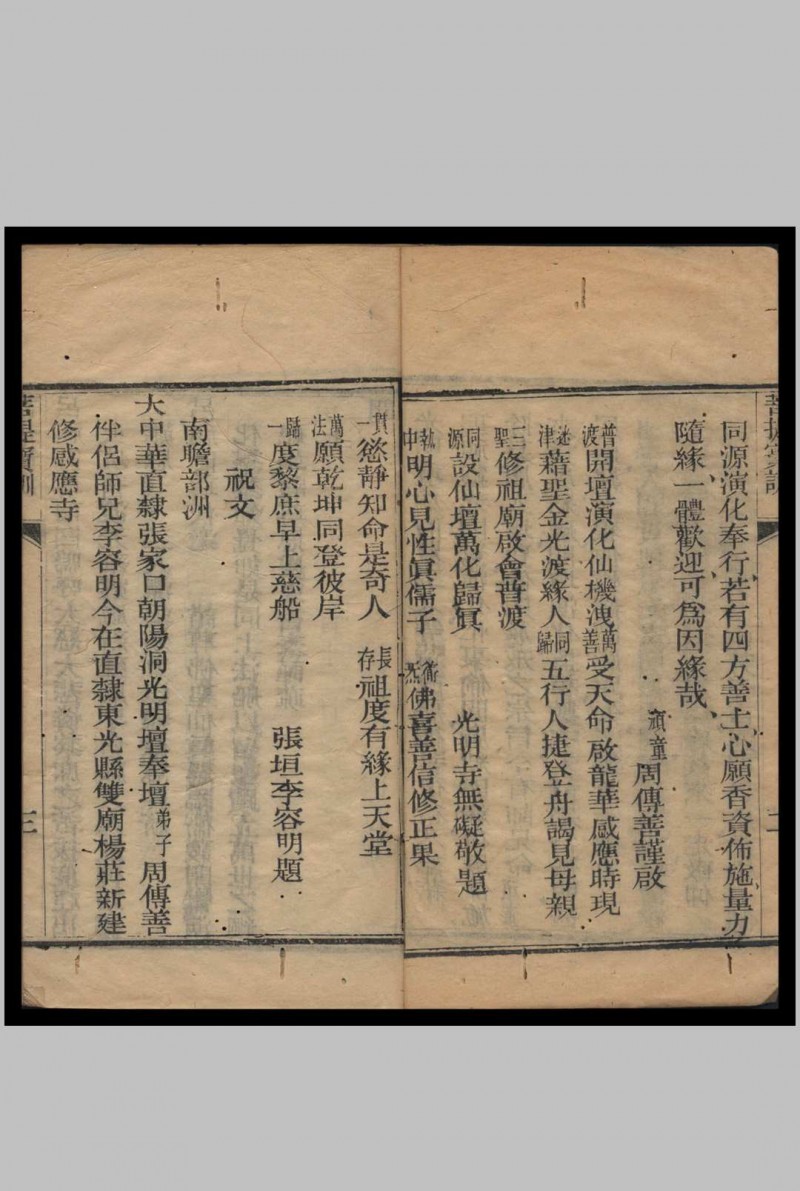 同源演化奉行若有四方善士心願香資佈施量力
隨緣一體歡迎可爲因緣哉
頑童周傳善謹啟
普渡開壇演化仙機洩 萬善受天命啟龍華感應時現
迷津藉聖金光渡緣人 同歸五行人捷登舟謁見母親
三聖修祖廟啟會普渡
同源設仙壇萬化歸眞 光明寺無礙敬題
執中明心見性眞儒子 佛喜善信修正果
貫一慾靜知命是奇人 長存祖度有緣上天堂
萬法願乾坤同登彼岸
歸一度黎庶早上慈船 張垣李容明題
祝文
南瞻部洲
大中華直隸張家口朝陽洞光明壇奉壇弟子周傳善
伴侶師兄李容明今在直隸東光縣雙廟楊莊新建
修感應寺
菩提寶訓
二
菩提寶訓
三